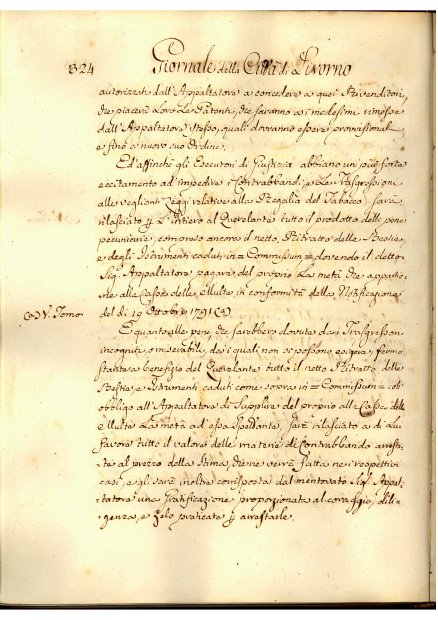 324 Giornale della Città di Livorno
autorizzate dall'Appaltatore a concedere a quei Rivenditori,
che piacerà Loro Le Patenti, che saranno ai medesimi rimesse
dall'Appaltatore istesso, quali dovranno essere provvisionali
e fino a nuovo suo Ordine.
Ed affinchè gli Esecutori di Giustizia abbiano un più forte
eccitamento ad impedire i Contrabbandi, e Le Trasgressioni
alle veglianti Leggi relative alla Regalia del Tabacco, sarà
rilasciato p L'intiero al Querelante tutto il prodotto delle pene
pecuniarie, compreso ancora il netto Ritratto delle Bestie,
e degli Istrumenti caduti in = Commissum = dovendo il detto
Sig. Appaltatore pagare del proprio La metà che appartie-
ne alla Cassa delle Multe in conformità della Notificazione
del dì 19 Ottobre 1791 (a)
(a) V. Tomo
E quanto alle pene che sarebbero dovute dai Trasgressori
incogniti, o miserabili, dai quali non si possono esigere, fermo
stante a benefizio del Querelante tutto il netto Ritratto delle
Bestie, e Istrumenti caduti come sopra in = Commissum = coll'
obbligo all'Appaltatore di Supplire del proprio alla Cassa delle
Multe La metà ad essa Spettante, sarà rilasciato a di Lui
favore tutto il valore delle materie di Contrabbando arresta-
te al prezzo della Stima, che ne verrà fatta nei respettivi
casi, e gli sarà inoltre corrisposta dal mentovato Sig. Appal-
tatore una Gratificazione proporzionata al coraggio, dili-
genza, e zelo praticato p arrestarle.